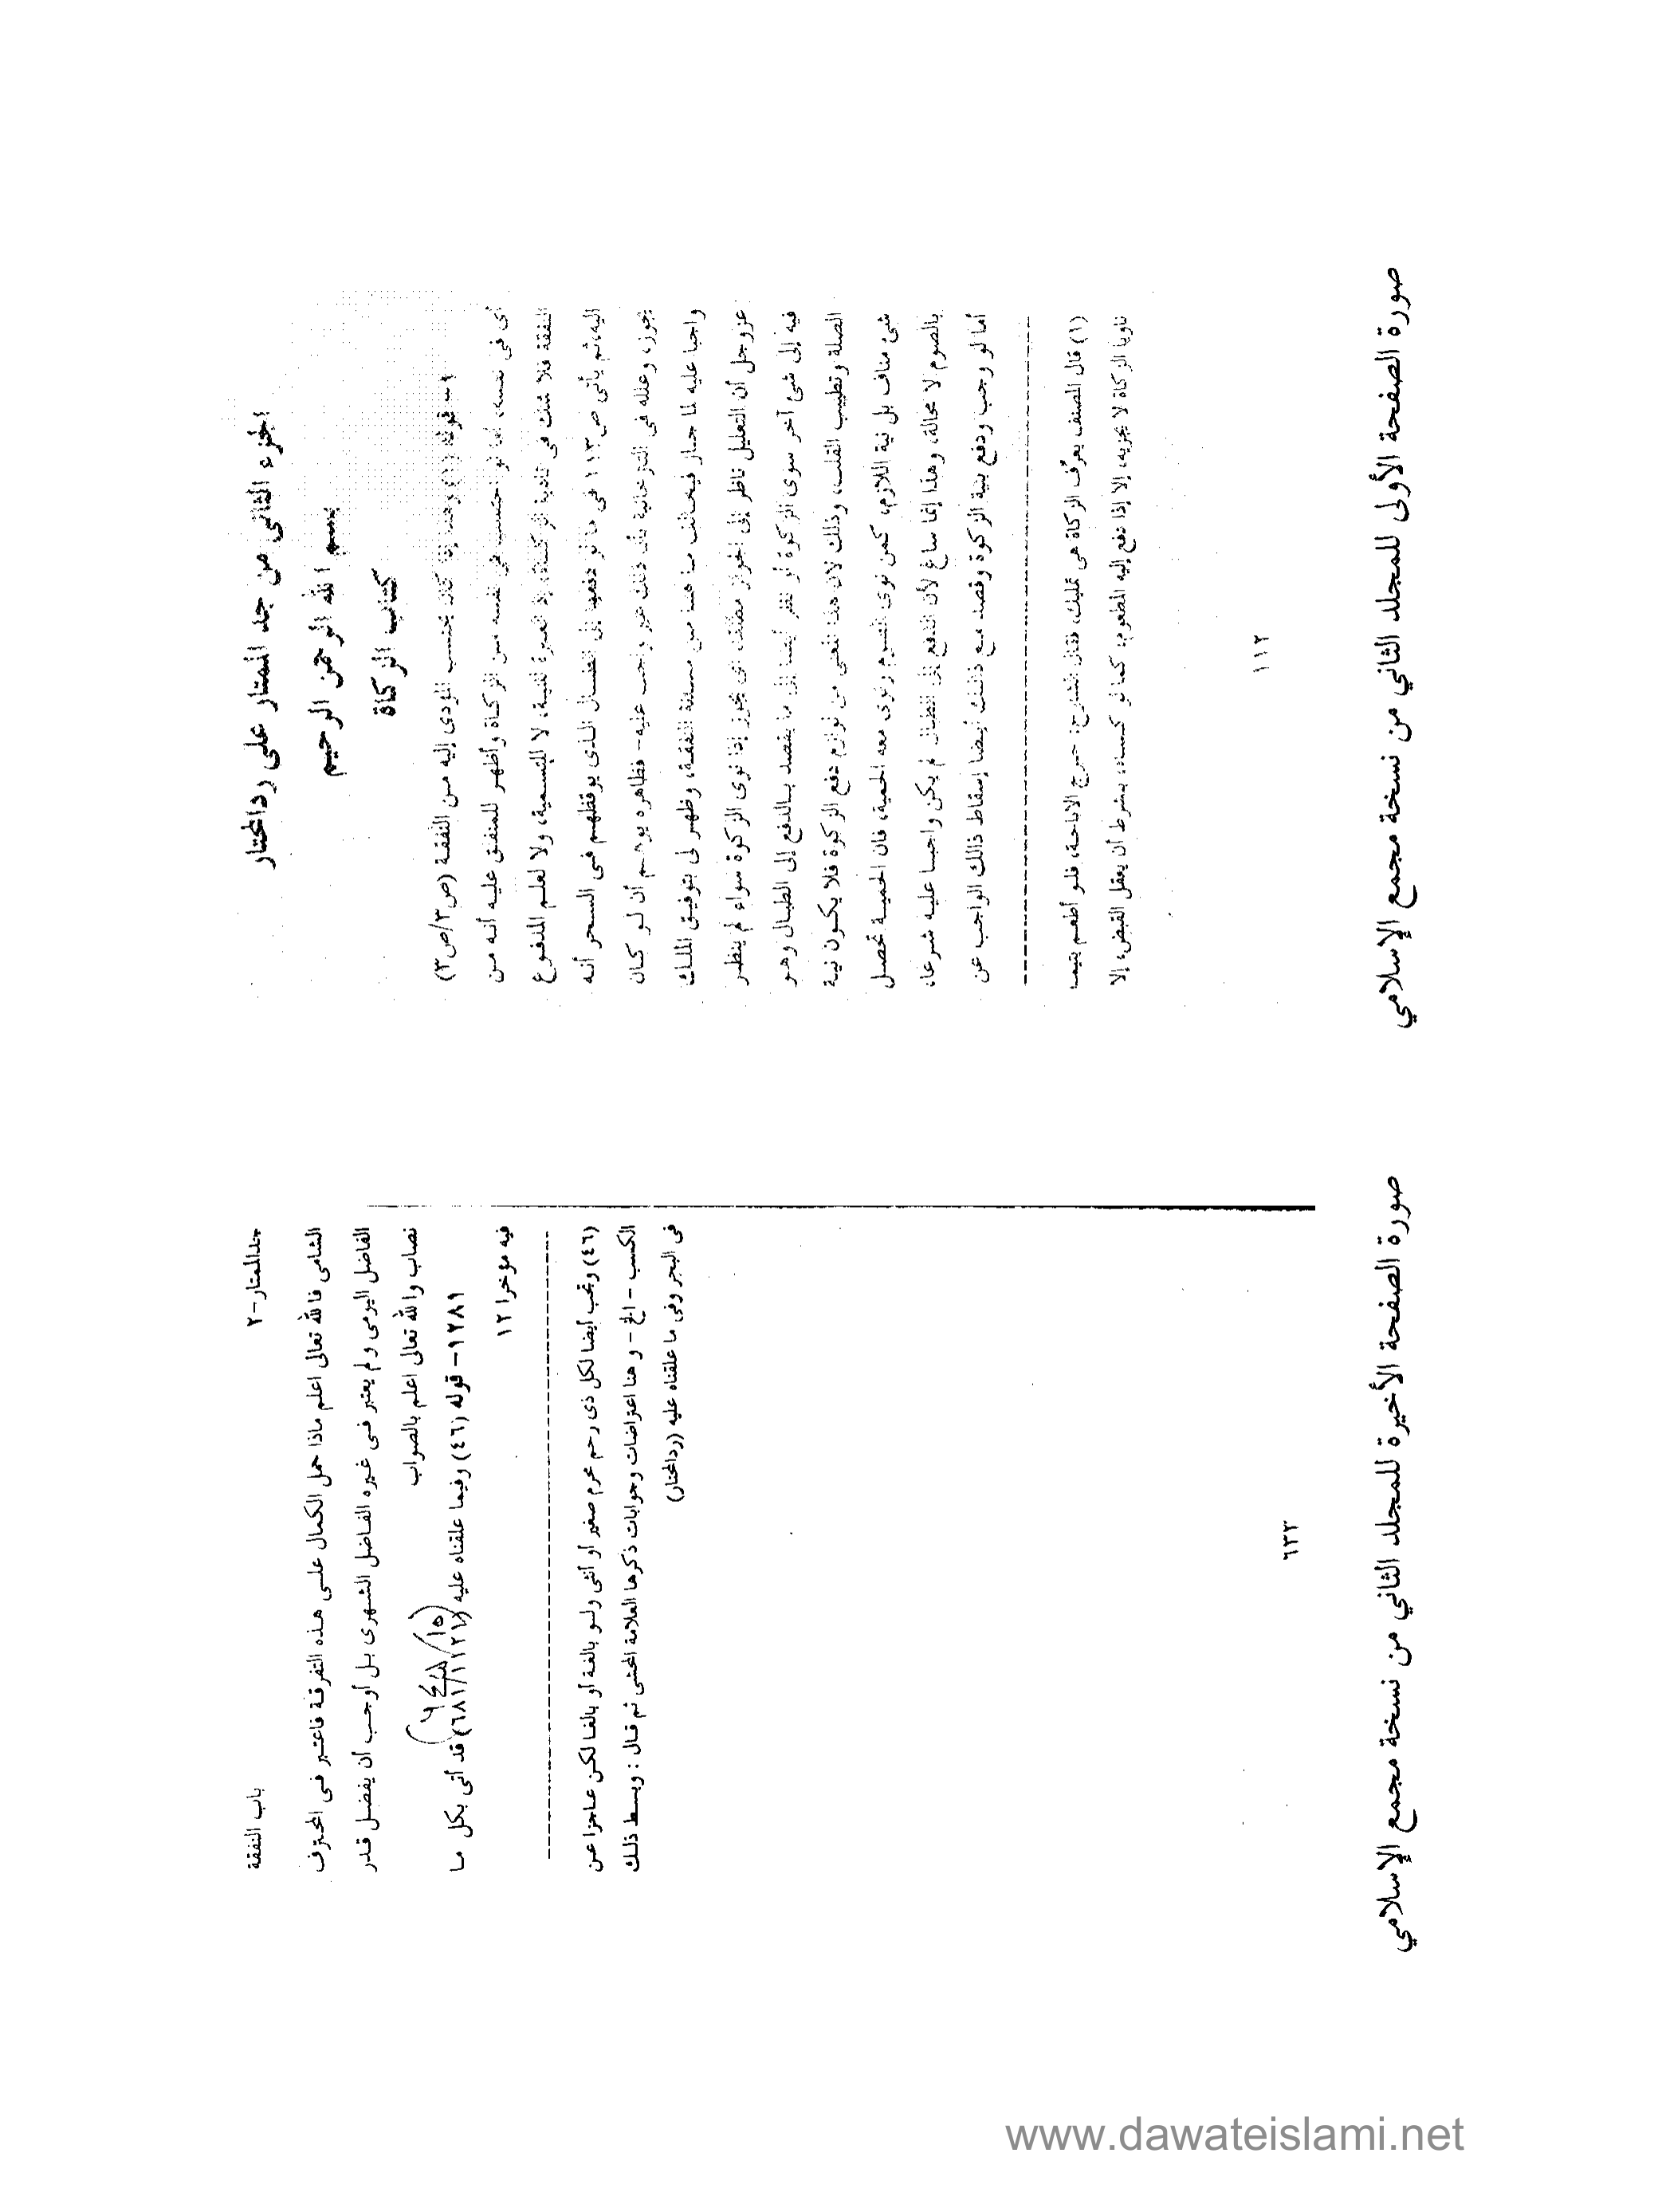 الجزء الثانى من جد الممتار على ردالمحتار
بسم الله الرحمن الرحيم
كتاب الزكاة
١- قوله (١) وهذا إذا كان يحتسب المؤدى إليه من النفقة (ص٢/ص٣)
أى فى نفسه، أما لو احتسب فى نفسه من الزكاة وأظهر للمنفق عليه أنه من
النفقة فلا شك فى تأدية الزكاة، إذ العبرة للنية، لا للتسمية، ولا لعلم المدفوع
اليه، ثم يأتى ص١١٣ فى ما لو دفعها إلى الطبال الذى يوقظهم فى السحر أنه
يجوز، وعلله فى التتارخانية بأن ذلك غير واجب عليه- فظاهره يوهم أن لو كان
واجبا عليه لما جاز فيخالف ما هنا من مسئلة النفقة، وظهر لى بتوفيق الملك
عزوجل أن التعليل ناظر إلى الجواز مطلقا، أى يجوز إذا نوى الزكوة سواء لم ينظر
فيه إلى شئ آخر سوى الزكوة أو نظر أيضا إلى ما يقصد بالدفع إلى الطبال وهو
الصلة وتطييب القلب، وذلك لان هذا المعنى من لوازم دفع الزكوة فلا يكون نية
شئ مناف بل نية اللازم، كمن نوى الصوم ونوى معه الحمية، فان الحمية تحصل
بالصوم لا محالة، وهذا إنما ساغ لأن الدفع إلى الطبال لم يكن واجبا عليه شرعا،
أما لو وجب ودفع بنية الزكوة وقصد مع ذلك أيضا إسقاط ذالك الواجب عن
(١) قال المصنف يعرّف الزكاة هى تمليك، فقال الشارح: خرج الاباحة، فلو أطعم يتيما
ناويا الزكاة لا يجزيه، إلا إذا دفع إليه المطعوم، كما لو كساه، بشرط أن يعقل القبض، إلا
١١٢
صورة الصفحة الأولى للمجلد الثاني من نسخة مجمع الإسلامي
جدالممتار-٢
باب النفقة
الشامى فالله تعالى اعلم ماذا حمل الكمال على هذه التفرقة فاعتبر فى المحترف
الفاضل اليومى ولم يعتبر فى غيره الفاضل الشهرى بل أوجب أن يفضل قدر
نصاب والله تعالى اعلم بالصواب
١٢٨١- قوله (٤٦) وفيما علقناه عليه (٦٨١/١١٢١) قد أتى بكل ما
فيه مؤخرا ١٢
(٤٦) وتجب أيضا لكل ذى رحم محرم صغير أو أنثى ولو بالغة أو بالغا لكن عاجزا عن
الكسب - الخ - وهنا اعتراضات وجوابات ذكرها العلامة المحشى ثم قال : وبسط ذلك
فى البحر وفى ما علقناه عليه (ردالمحتار)
٦٣٣
صورة الصفحة الأخيرة للمجلد الثاني من نسخة مجمع الإسلامي
www.dawateislami.net